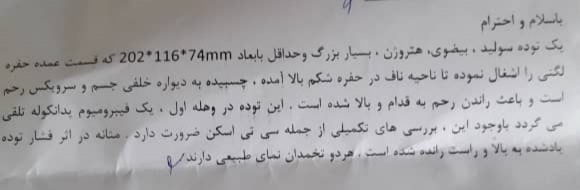 باسلام و احترام
یک توده سولید ، بیضوی، هتروژن ، بسیار بزرگ وحداقل بابعاد 202*116*74mm که قسمت عمده حفره
لگنی را اشغال نموده تا ناحیه ناف در حفره شکم بالا آمده ، چسبیده به دیواره خلفی جسم و سرویکس رحم
است و باعث راندن رحم به قدام و بالا شده است . این توده در وهله اول ، یک فیبرومیوم پدانکوله تلقی
می گردد باوجود این ، بررسی های تکمیلی از جمله سی تی اسکن ضرورت دارد . مثانه در اثر فشار توده
یادشده به بالا و راست رانده شده است . هردو تخمدان نمای طبیعی دارند